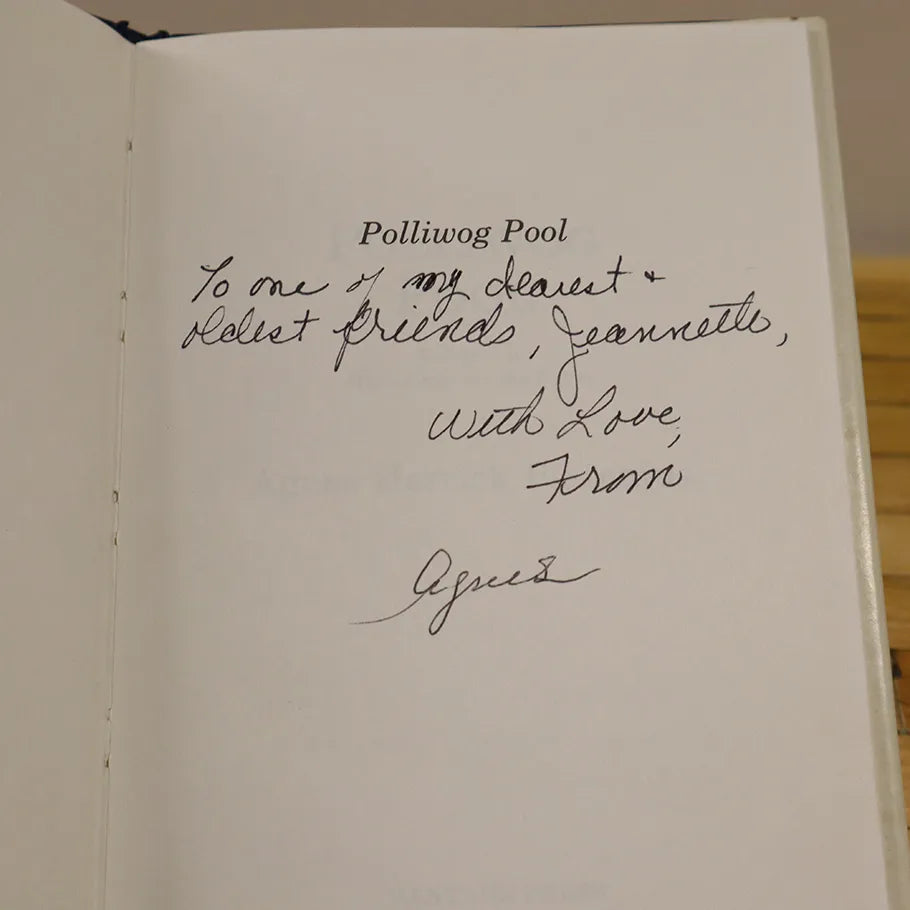 Polliwog Pool
To one of my dearest +
oldest friends, Jeannette,
With Love,
From
Agnes